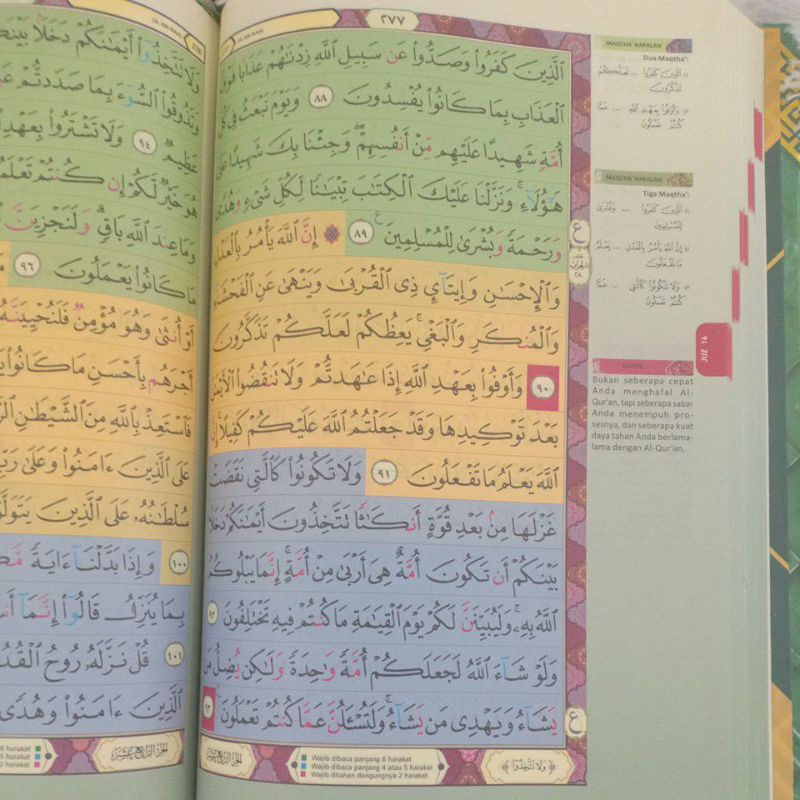 ٢٧٧
الَّذِينَ كَفَرُوا وَصَدُّوا عَن سَبِيلِ اللَّهِ زِدْنَاهُمْ عَذَابًا فَوْقَ
الْعَذَابِ بِمَا كَانُوا يُفْسِدُونَ ٨٨ وَيَوْمَ نَبْعَثُ فِي كُلِّ
أُمَّةٍ شَهِيدًا عَلَيْهِم مِّنْ أَنفُسِهِمْ وَجِئْنَا بِكَ شَهِيدًا عَلَىٰ
هَٰؤُلَاءِ وَنَزَّلْنَا عَلَيْكَ الْكِتَابَ تِبْيَانًا لِّكُلِّ شَيْءٍ وَهُدًى
وَرَحْمَةً وَبُشْرَىٰ لِلْمُسْلِمِينَ ٨٩ ۞ إِنَّ اللَّهَ يَأْمُرُ بِالْعَدْلِ
وَالْإِحْسَانِ وَإِيتَاءِ ذِي الْقُرْبَىٰ وَيَنْهَىٰ عَنِ الْفَحْشَاءِ
وَالْمُنكَرِ وَالْبَغْيِ يَعِظُكُمْ لَعَلَّكُمْ تَذَكَّرُونَ
٩٠ وَأَوْفُوا بِعَهْدِ اللَّهِ إِذَا عَاهَدتُّمْ وَلَا تَنقُضُوا الْأَيْمَانَ
بَعْدَ تَوْكِيدِهَا وَقَدْ جَعَلْتُمُ اللَّهَ عَلَيْكُمْ كَفِيلًا إِنَّ
اللَّهَ يَعْلَمُ مَا تَفْعَلُونَ ٩١ وَلَا تَكُونُوا كَالَّتِي نَقَضَتْ
غَزْلَهَا مِن بَعْدِ قُوَّةٍ أَنكَاثًا تَتَّخِذُونَ أَيْمَانَكُمْ دَخَلًا
بَيْنَكُمْ أَن تَكُونَ أُمَّةٌ هِيَ أَرْبَىٰ مِنْ أُمَّةٍ إِنَّمَا يَبْلُوكُمُ
اللَّهُ بِهِ وَلَيُبَيِّنَنَّ لَكُمْ يَوْمَ الْقِيَامَةِ مَا كُنتُمْ فِيهِ تَخْتَلِفُونَ ٩٢
وَلَوْ شَاءَ اللَّهُ لَجَعَلَكُمْ أُمَّةً وَاحِدَةً وَلَٰكِن يُضِلُّ مَن
يَشَاءُ وَيَهْدِي مَن يَشَاءُ وَلَتُسْأَلُنَّ عَمَّا كُنتُمْ تَعْمَلُونَ ٩٣
Wajib dibaca panjang 6 harakat
Wajib dibaca panjang 4 atau 5 harakat
Wajib ditahan dengungnya 2 harakat
﴿ وَلَا تَتَّخِذُوا ﴾
MAQTHA' HAFALAN
Dua Maqtha':
الَّذِينَ كَفَرُوا ... لَعَلَّكُمْ
تَذَكَّرُونَ
وَأَوْفُوا بِعَهْدِ اللَّهِ ... عَمَّا
كُنتُمْ تَعْمَلُونَ
MAQTHA' HAFALAN
Tiga Maqtha':
الَّذِينَ كَفَرُوا ... وَبُشْرَىٰ
لِلْمُسْلِمِينَ
إِنَّ اللَّهَ يَأْمُرُ بِالْعَدْلِ ... يَعْلَمُ
مَا تَفْعَلُونَ
وَلَا تَكُونُوا كَالَّتِي ... عَمَّا
كُنتُمْ تَعْمَلُونَ
QUOTE
Bukan seberapa cepat
Anda menghafal Al-
Qur'an, tapi seberapa sabar
Anda menempuh pro-
sesnya, dan seberapa kuat
daya tahan Anda berlama-
lama dengan Al-Qur'an.
JUZ 14
وَلَا تَتَّخِذُوا أَيْمَانَكُمْ دَخَلًا بَيْنَكُمْ
وَتَذُوقُوا السُّوءَ بِمَا صَدَدتُّمْ عَن
عَظِيمٌ ٩٤ وَلَا تَشْتَرُوا بِعَهْدِ
هُوَ خَيْرٌ لَّكُمْ إِن كُنتُمْ تَعْلَمُونَ
وَمَا عِندَ اللَّهِ بَاقٍ وَلَنَجْزِيَنَّ
مَا كَانُوا يَعْمَلُونَ ٩٦
أَوْ أُنثَىٰ وَهُوَ مُؤْمِنٌ فَلَنُحْيِيَنَّهُ
أَجْرَهُم بِأَحْسَنِ مَا كَانُوا
فَاسْتَعِذْ بِاللَّهِ مِنَ الشَّيْطَانِ
عَلَى الَّذِينَ آمَنُوا وَعَلَىٰ
سُلْطَانُهُ عَلَى الَّذِينَ يَتَوَلَّوْنَهُ
١٠٠ وَإِذَا بَدَّلْنَا آيَةً
بِمَا يُنَزِّلُ قَالُوا إِنَّمَا
١٠١ قُلْ نَزَّلَهُ رُوحُ الْقُدُسِ
الَّذِينَ آمَنُوا وَهُدًى
6 harakat
5 harakat
2 harakat